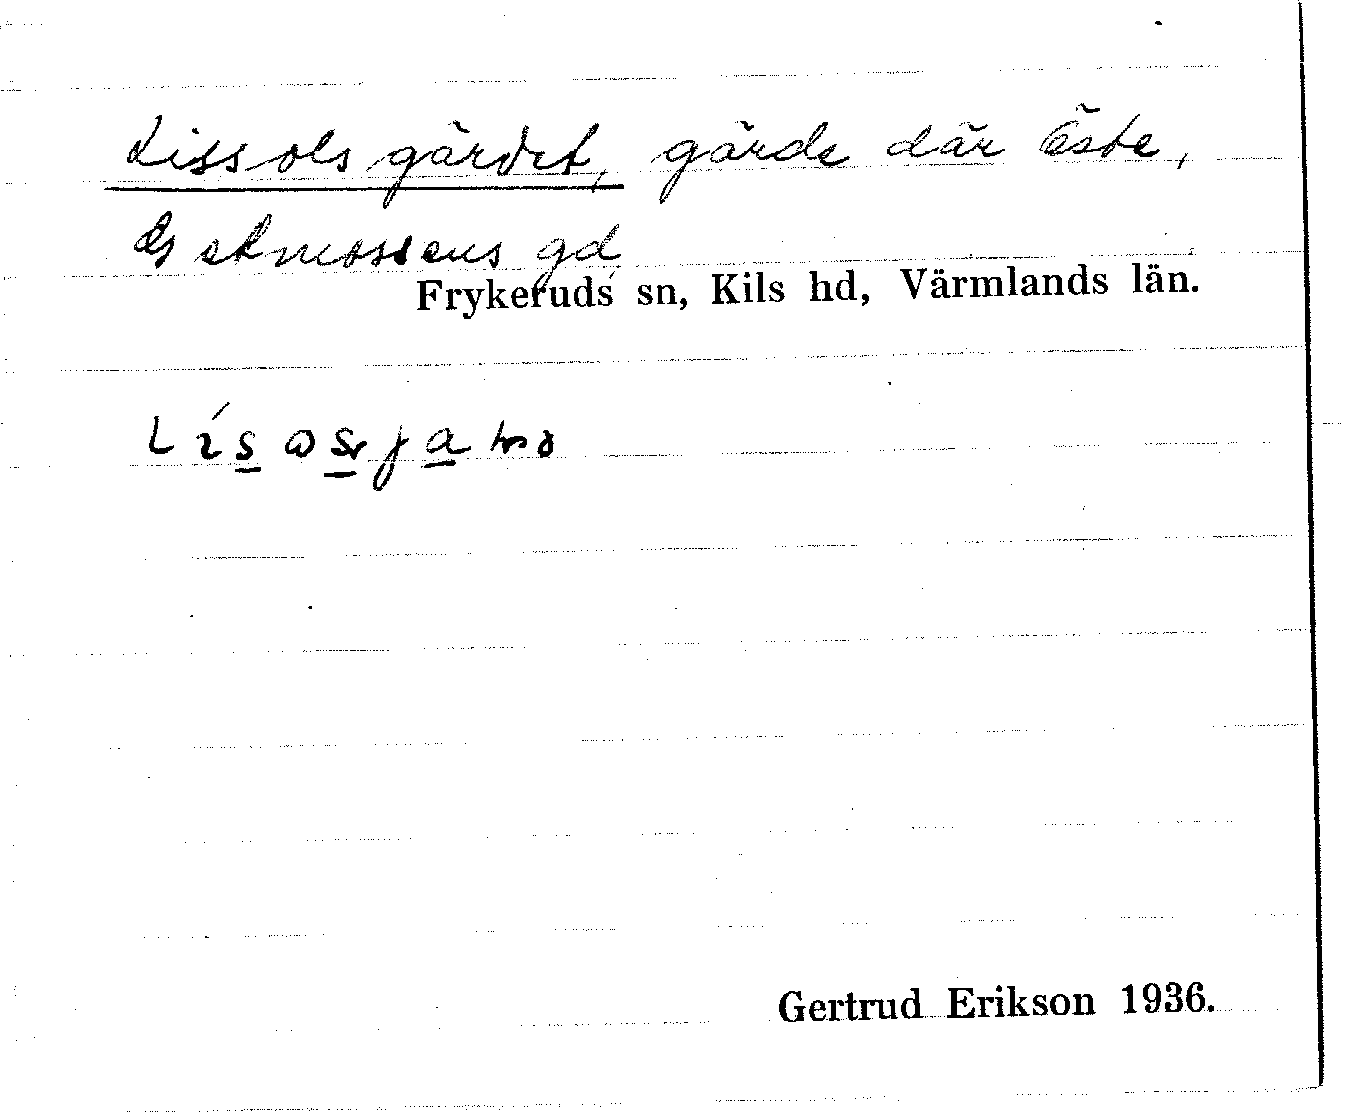 Lissolsgärdet, gärde där Öste,
mossens gd
Frykeruds sn, Kils hd, Värmlands län.
Gertrud Erikson 1936.